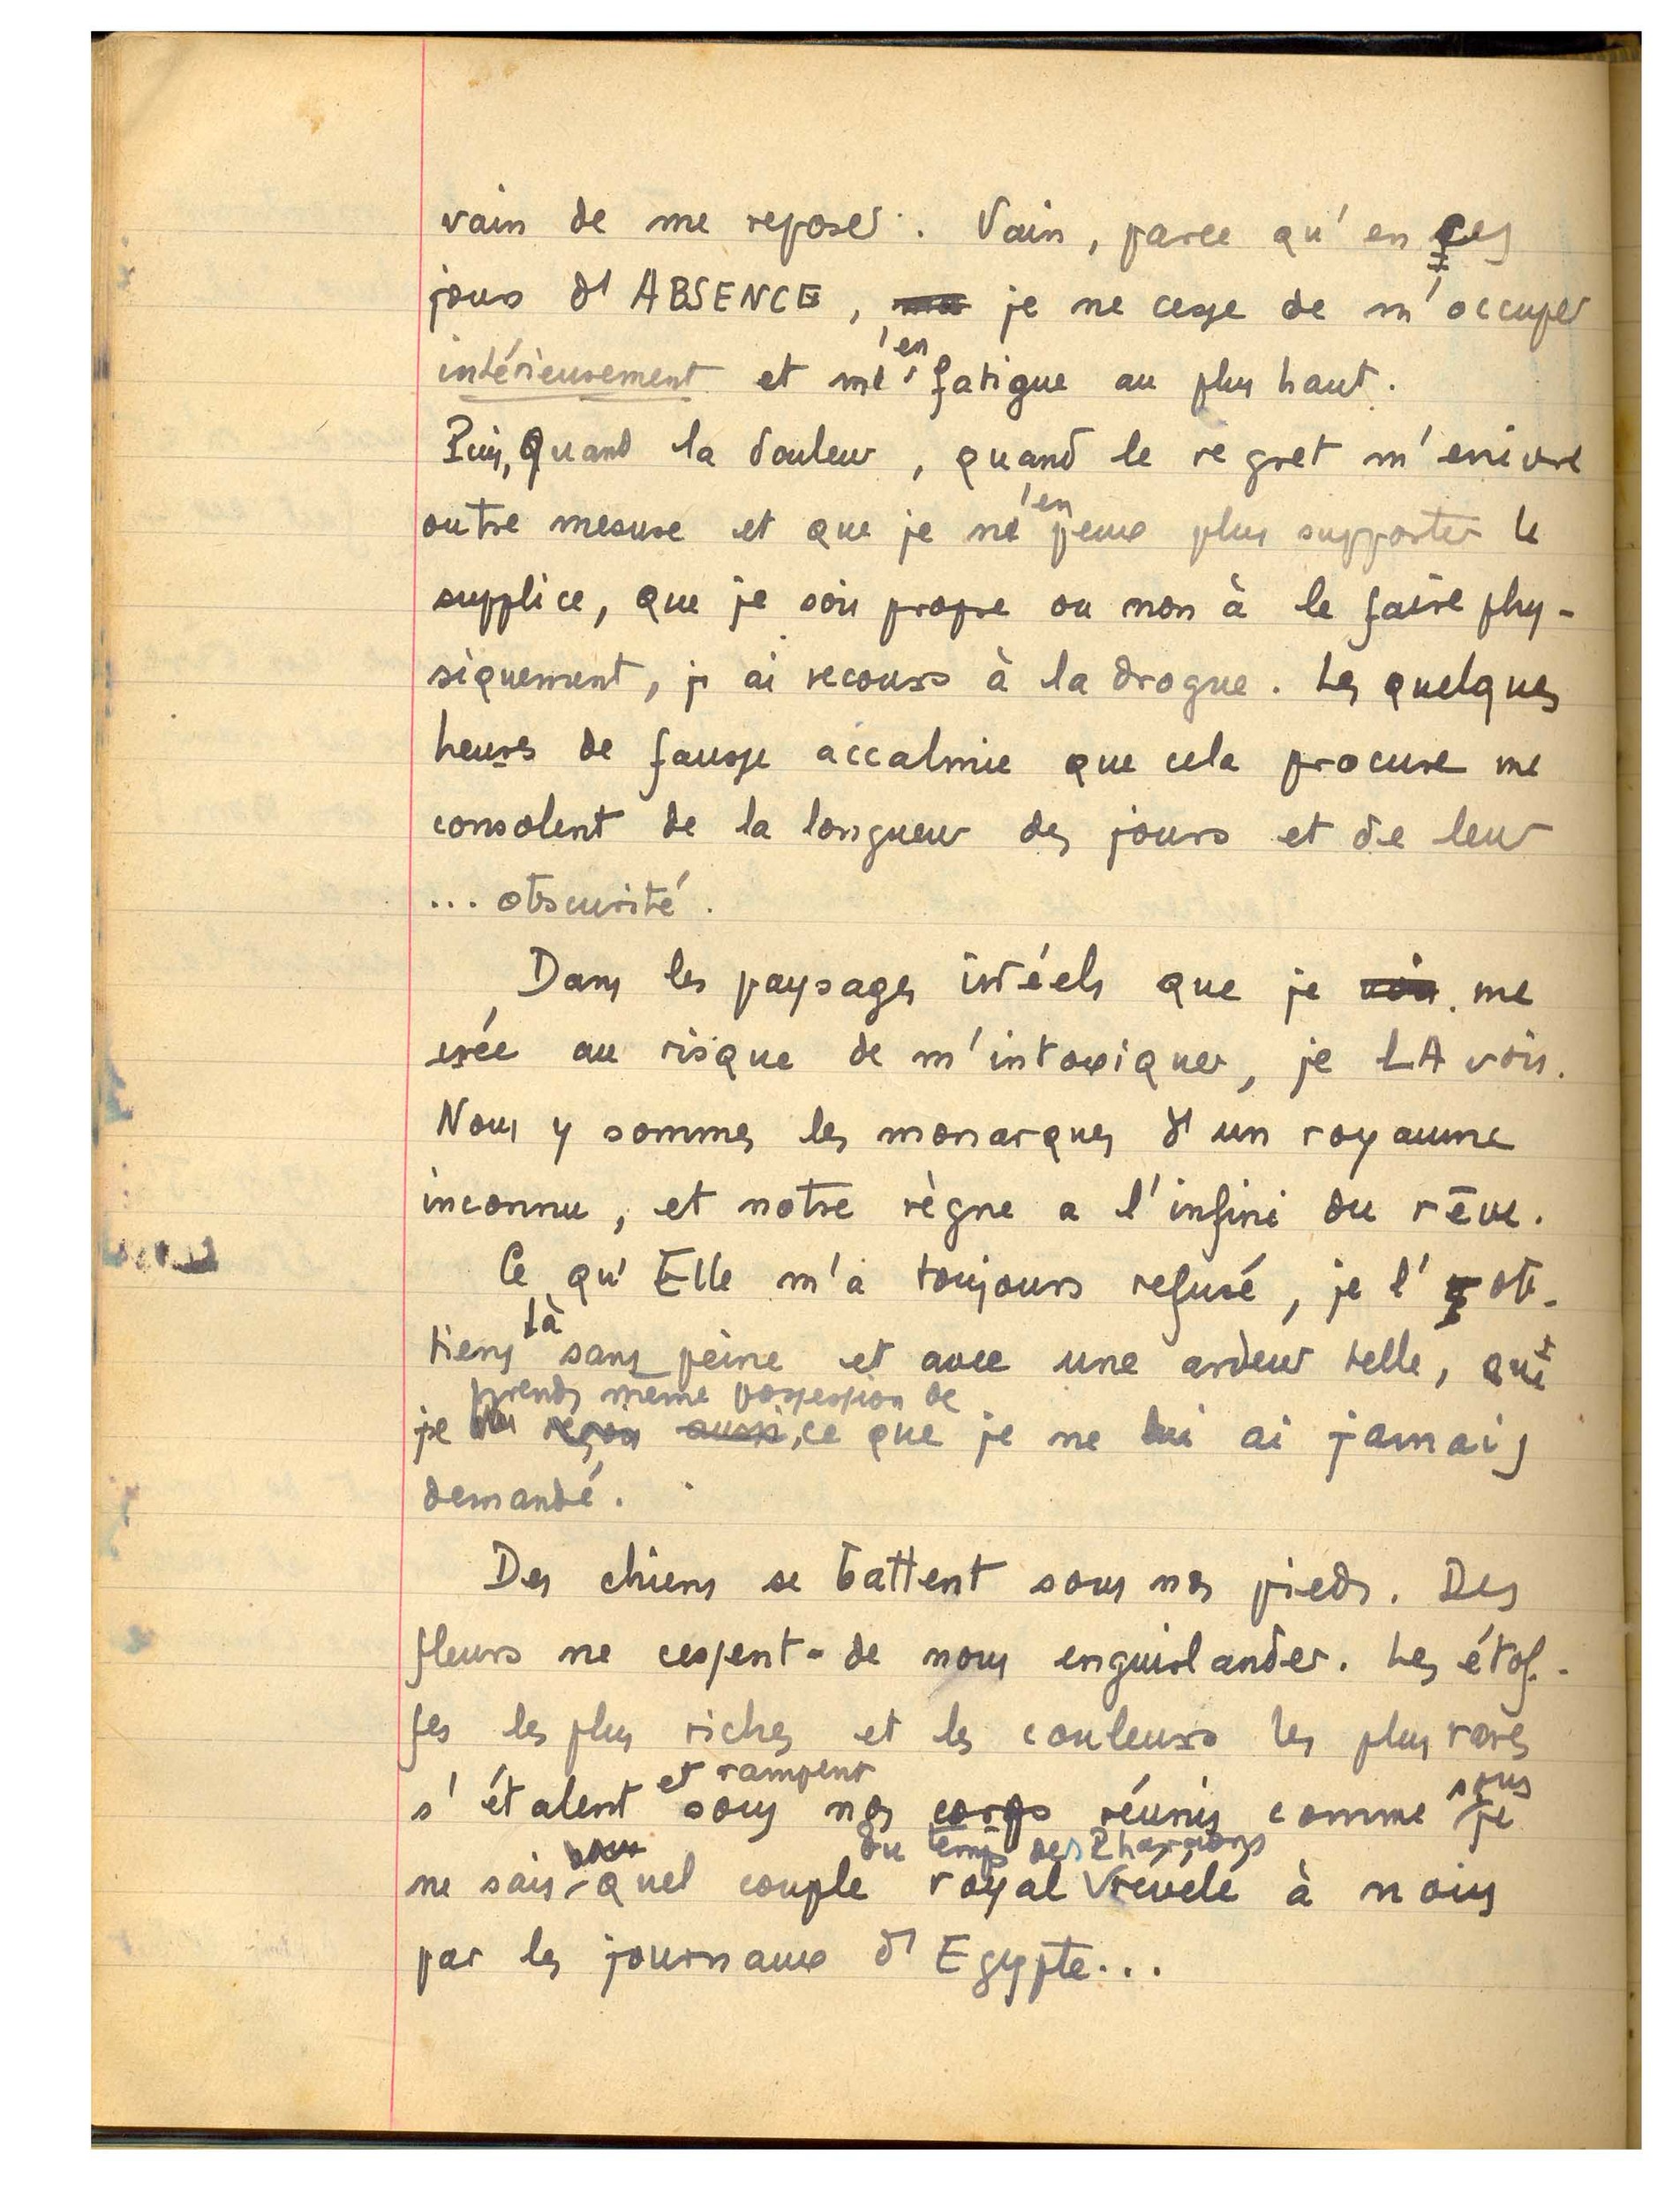 vain de me reposer. Vain, parce qu'en ces
jours d'ABSENCE, je ne cesse de m'occuper
intérieurement et m'en fatigue au plus haut.
Puis, Quand la douleur, quand le regret m'enivre
outre mesure et que je n'en peux plus supporter le
supplice, que je sois propre ou non à le faire phy-
siquement, j'ai recours à la drogue. Les quelques
heures de fausse accalmie que cela procure me
consolent de la longueur des jours et de leur
... obscurité.
Dans les paysages irréels que je vois me
crée au risque de m'intoxiquer, je LA vois.
Nous y sommes les monarques d'un royaume
inconnu, et notre règne a l'infini du rêve.
Ce qu'Elle m'a toujours refusé, je l'ob-
là
tiens sans peine et avec une ardeur telle, que
prends même possession de
je reçois aussi, ce que je ne lui ai jamais
demandé.
Des chiens se battent sous nos pieds. Des
fleurs ne cessent de nous enguirlander. Les étof-
fes les plus riches et les couleurs les plus rares
et rampent sous
s'étalent sous nos corps réunis comme je
sous du temps des Pharaons
ne sais quel couple royal révélé à nous
par les journaux d'Egypte...